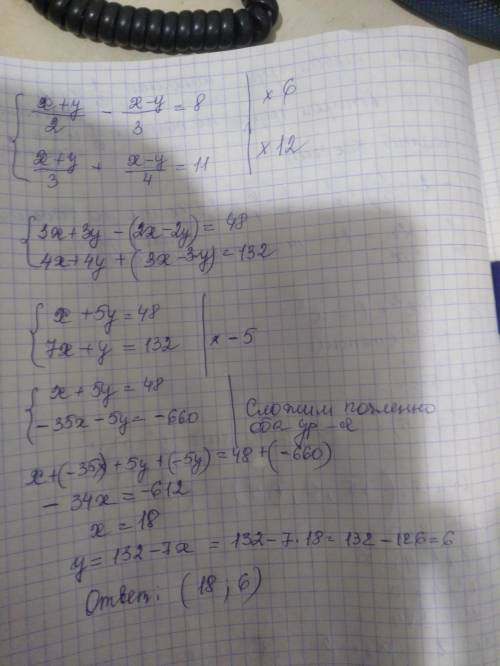 { (x+y)/2 - (x-y)/3 = 8 | x 6
(x+y)/3 + (x-y)/4 = 11 | x 12
{ 3x+3y - (2x-2y) = 48
4x+4y + (3x-3y) = 132
{ x + 5y = 48
7x + y = 132 | x - 5
{ x + 5y = 48
-35x - 5y = -660 | Сложим почленно
оба ур-я
x + (-35x) + 5y + (-5y) = 48 + (-660)
- 34x = -612
x = 18
y = 132 - 7x = 132 - 7·18 = 132 - 126 = 6
Ответ: (18; 6)